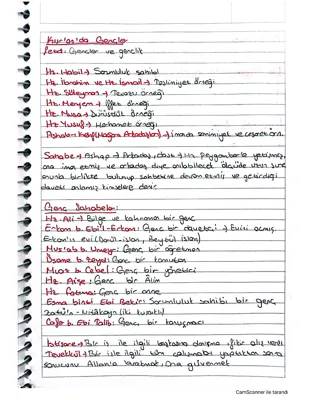 Kur'an'da Gençler
Fera: Gençler ve gençlik
Hz. Habil → Sorumluluk sahibi
Hz. İbrahim ve Hz. İsmail → Teslimiyet örneği
Hz. Süleyman → Tevazu örneği
Hz. Meryem → İffet örneği
Hz. Musa → Dürüstlük örneği
Hz Yusuf → Merhamet örneği
Ashab-ı Kehf (Mağara Arkadaşları) → imanda samimiyet ve cesaret örn.
Sahabe → Ashap → Arkadaş, dost → Hz. Peygamberle yetişmiş,
ona iman etmiş ve arkadaş diye anılabilecek ölçüde uzun süre
onunla birlikte bulunup sohbetine devam etmiş ve getirdiği
davete anlamış kimselere denir.
Genç Sahabeler:
Hz. Ali → Bilge ve kahraman bir genç
Erkam b. Ebi'l-Erkam: Genç bir davetçi → Evini açmış.
Erkam'ın evi (Darül-islam, Beytül İslam)
Mus'ab b. Umeyr: Genç bir öğretmen
Üsame b. Zeyd: Genç bir komutan
Muaz b. Cebel: Genç bir yönetici
Hz. Aişe: Genç bir Alim
Hz. Fatıma: Genç bir anne
Esma binti Ebi Bekir: Sorumluluk sahibi bir genç
(iki kuşaklı)
Cafer b. Ebi Talib: Genç bir konuşmacı
İstişare → Bir iş ile ilgili başkasına danışma, fikir alış verişi
Tevekkül → Bir işle ilgili tüm çalışmalar yaptıktan sonra
sonucunu Allah'a bırakmak, Ona güvenmek
CamScanner ile tarandı